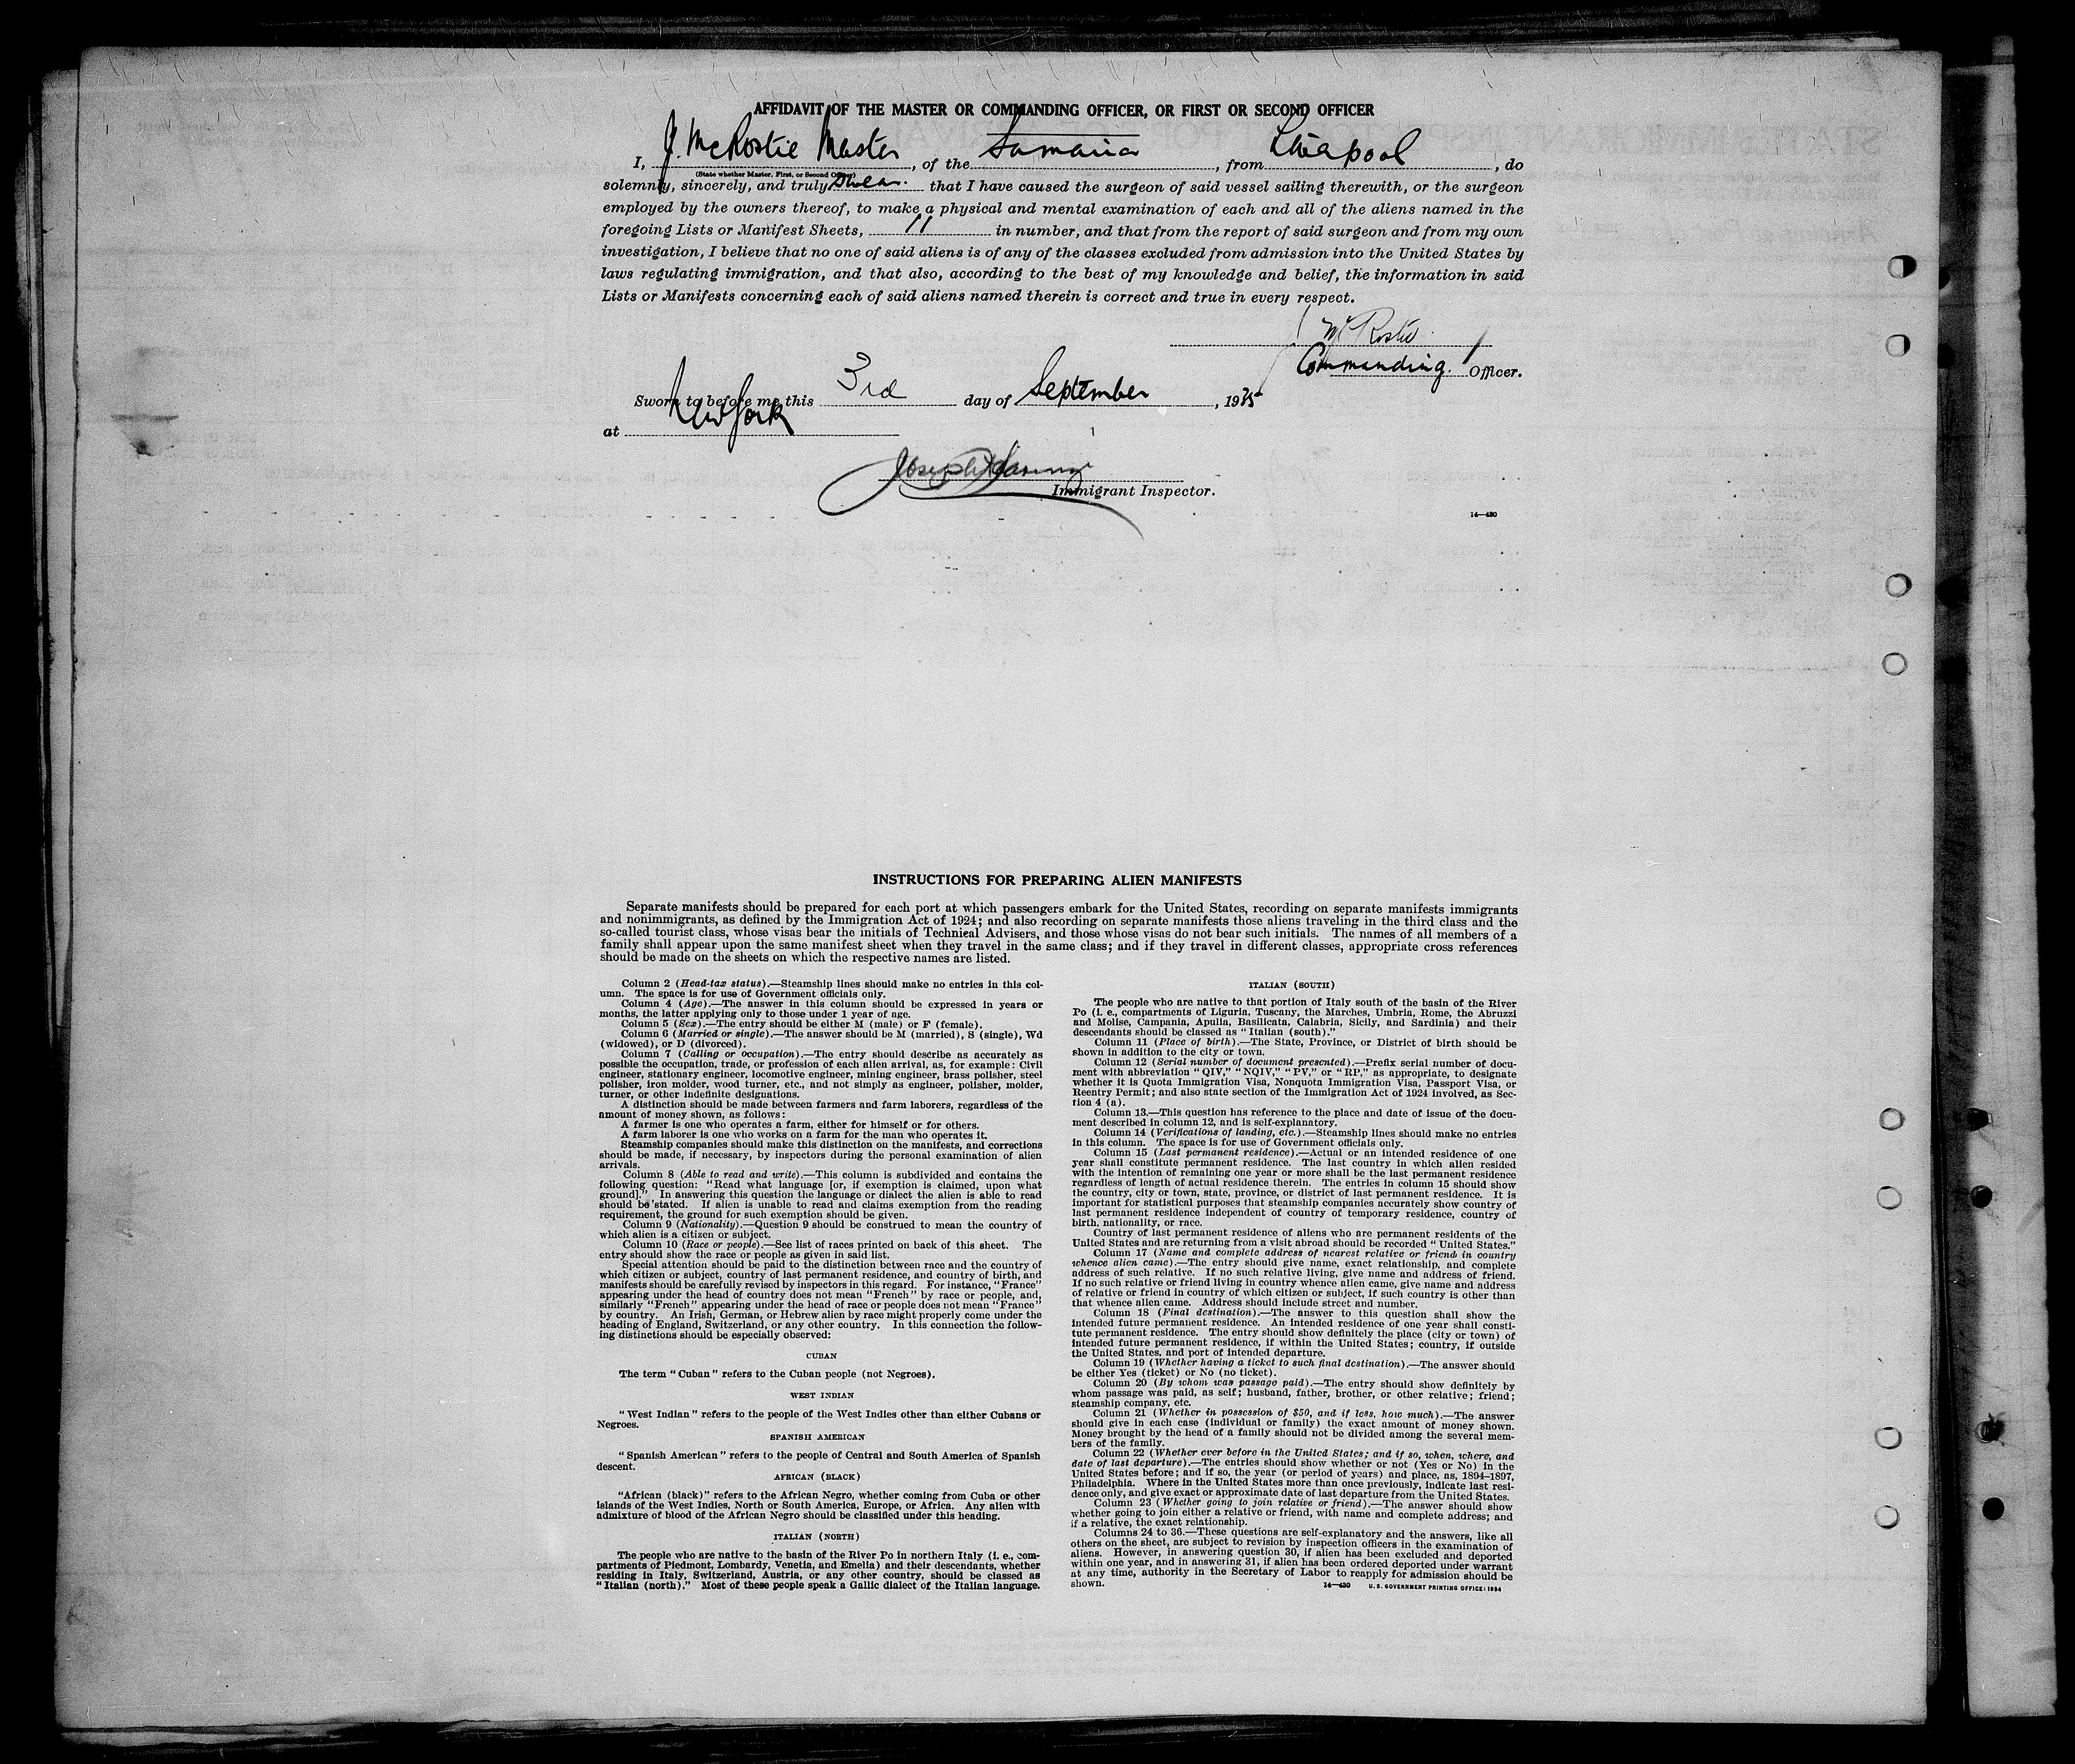 AFFIDAVIT OF THE MASTER OR COMMANDING OFFICER, OR FIRST OR SECOND OFFICER
I, J. McRostie Master, of the Samaria, from Liverpool, do
(State whether Master, First, or Second Officer)
solemnly, sincerely, and truly swear that I have caused the surgeon of said vessel sailing therewith, or the surgeon
employed by the owners thereof, to make a physical and mental examination of each and all of the aliens named in the
foregoing Lists or Manifest Sheets, 11 in number, and that from the report of said surgeon and from my own
investigation, I believe that no one of said aliens is of any of the classes excluded from admission into the United States by
laws regulating immigration, and that also, according to the best of my knowledge and belief, the information in said
Lists or Manifests concerning each of said aliens named therein is correct and true in every respect.
J McRostie
Commanding Officer.
Sworn to before me this 3rd day of September, 1935
at New York
Joseph
Immigrant Inspector.
14—430
INSTRUCTIONS FOR PREPARING ALIEN MANIFESTS
Separate manifests should be prepared for each port at which passengers embark for the United States, recording on separate manifests immigrants
and nonimmigrants, as defined by the Immigration Act of 1924; and also recording on separate manifests those aliens traveling in the third class and the
so-called tourist class, whose visas bear the initials of Technical Advisers, and those whose visas do not bear such initials. The names of all members of a
family shall appear upon the same manifest sheet when they travel in the same class; and if they travel in different classes, appropriate cross references
should be made on the sheets on which the respective names are listed.
Column 2 (Head-tax status).—Steamship lines should make no entries in this col-
umn. The space is for use of Government officials only.
Column 4 (Age).—The answer in this column should be expressed in years or
months, the latter applying only to those under 1 year of age.
Column 5 (Sex).—The entry should be either M (male) or F (female).
Column 6 (Married or single).—The answer should be M (married), S (single), Wd
(widowed), or D (divorced).
Column 7 (Calling or occupation).—The entry should describe as accurately as
possible the occupation, trade, or profession of each alien arrival, as, for example: Civil
engineer, stationary engineer, locomotive engineer, mining engineer, brass polisher, steel
polisher, iron molder, wood turner, etc., and not simply as engineer, polisher, molder,
turner, or other indefinite designations.
A distinction should be made between farmers and farm laborers, regardless of the
amount of money shown, as follows:
A farmer is one who operates a farm, either for himself or for others.
A farm laborer is one who works on a farm for the man who operates it.
Steamship companies should make this distinction on the manifests, and corrections
should be made, if necessary, by inspectors during the personal examination of alien
arrivals.
Column 8 (Able to read and write).—This column is subdivided and contains the
following question: "Read what language [or, if exemption is claimed, upon what
ground]." In answering this question the language or dialect the alien is able to read
should be stated. If alien is unable to read and claims exemption from the reading
requirement, the ground for such exemption should be given.
Column 9 (Nationality).—Question 9 should be construed to mean the country of
which alien is a citizen or subject.
Column 10 (Race or people).—See list of races printed on back of this sheet. The
entry should show the race or people as given in said list.
Special attention should be paid to the distinction between race and the country of
which citizen or subject, country of last permanent residence, and country of birth, and
manifests should be carefully revised by inspectors in this regard. For instance, "France"
appearing under the head of country does not mean "French" by race or people, and,
similarly "French" appearing under the head of race or people does not mean "France"
by country. An Irish, German, or Hebrew alien by race might properly come under the
heading of England, Switzerland, or any other country. In this connection the follow-
ing distinctions should be especially observed:
CUBAN
The term "Cuban" refers to the Cuban people (not Negroes).
WEST INDIAN
"West Indian" refers to the people of the West Indies other than either Cubans or
Negroes.
SPANISH AMERICAN
"Spanish American" refers to the people of Central and South America of Spanish
descent.
AFRICAN (BLACK)
"African (black)" refers to the African Negro, whether coming from Cuba or other
islands of the West Indies, North or South America, Europe, or Africa. Any alien with
admixture of blood of the African Negro should be classified under this heading.
ITALIAN (NORTH)
The people who are native to the basin of the River Po in northern Italy (i. e., com-
partments of Piedmont, Lombardy, Venetia, and Emelia) and their descendants, whether
residing in Italy, Switzerland, Austria, or any other country, should be classed as
"Italian (north)." Most of these people speak a Gallic dialect of the Italian language.
ITALIAN (SOUTH)
The people who are native to that portion of Italy south of the basin of the River
Po (i. e., compartments of Liguria, Tuscany, the Marches, Umbria, Rome, the Abruzzi
and Molise, Campania, Apulia, Basilicata, Calabria, Sicily, and Sardinia) and their
descendants should be classed as "Italian (south)."
Column 11 (Place of birth).—The State, Province, or District of birth should be
shown in addition to the city or town.
Column 12 (Serial number of document presented).—Prefix serial number of docu-
ment with abbreviation "QIV," "NQIV," "PV," or "RP," as appropriate, to designate
whether it is Quota Immigration Visa, Nonquota Immigration Visa, Passport Visa, or
Reentry Permit; and also state section of the Immigration Act of 1924 involved, as Sec-
tion 4 (a).
Column 13.—This question has reference to the place and date of issue of the docu-
ment described in column 12, and is self-explanatory.
Column 14 (Verifications of landing, etc.).—Steamship lines should make no entries
in this column. The space is for use of Government officials only.
Column 15 (Last permanent residence).—Actual or an intended residence of one
year shall constitute permanent residence. The last country in which alien resided
with the intention of remaining one year or more shall be the last permanent residence
regardless of length of actual residence therein. The entries in column 15 should show
the country, city or town, state, province, or district of last permanent residence. It is
important for statistical purposes that steamship companies accurately show country of
last permanent residence independent of country of temporary residence, country of
birth, nationality, or race.
Country of last permanent residence of aliens who are permanent residents of the
United States and are returning from a visit abroad should be recorded "United States."
Column 17 (Name and complete address of nearest relative or friend in country
whence alien came).—The entry should give name, exact relationship, and complete
address of such relative. If no such relative living, give name and address of friend.
If no such relative or friend living in country whence alien came, give name and address
of relative or friend in country of which citizen or subject, if such country is other than
that whence alien came. Address should include street and number.
Column 18 (Final destination).—The answer to this question shall show the
intended future permanent residence. An intended residence of one year shall consti-
tute permanent residence. The entry should show definitely the place (city or town) of
intended future permanent residence, if within the United States; country, if outside
the United States, and port of intended departure.
Column 19 (Whether having a ticket to such final destination).—The answer should
be either Yes (ticket) or No (no ticket).
Column 20 (By whom was passage paid).—The entry should show definitely by
whom passage was paid, as self; husband, father, brother, or other relative; friend;
steamship company, etc.
Column 21 (Whether in possession of $50, and if less, how much).—The answer
should give in each case (individual or family) the exact amount of money shown.
Money brought by the head of a family should not be divided among the several mem-
bers of the family.
Column 22 (Whether ever before in the United States; and if so, when, where, and
date of last departure).—The entries should show whether or not (Yes or No) in the
United States before; and if so, the year (or period of years) and place, as, 1894–1897,
Philadelphia. Where in the United States more than once previously, indicate last resi-
dence only, and give exact or approximate date of last departure from the United States.
Column 23 (Whether going to join relative or friend).—The answer should show
whether going to join either a relative or friend, with name and complete address; and
if a relative, the exact relationship.
Columns 24 to 36.—These questions are self-explanatory and the answers, like all
others on the sheet, are subject to revision by inspection officers in the examination of
aliens. However, in answering question 30, if alien has been excluded and deported
within one year, and in answering 31, if alien has been ordered deported under warrant
at any time, authority in the Secretary of Labor to reapply for admission should be
shown.
14—430 U.S. GOVERNMENT PRINTING OFFICE: 1934